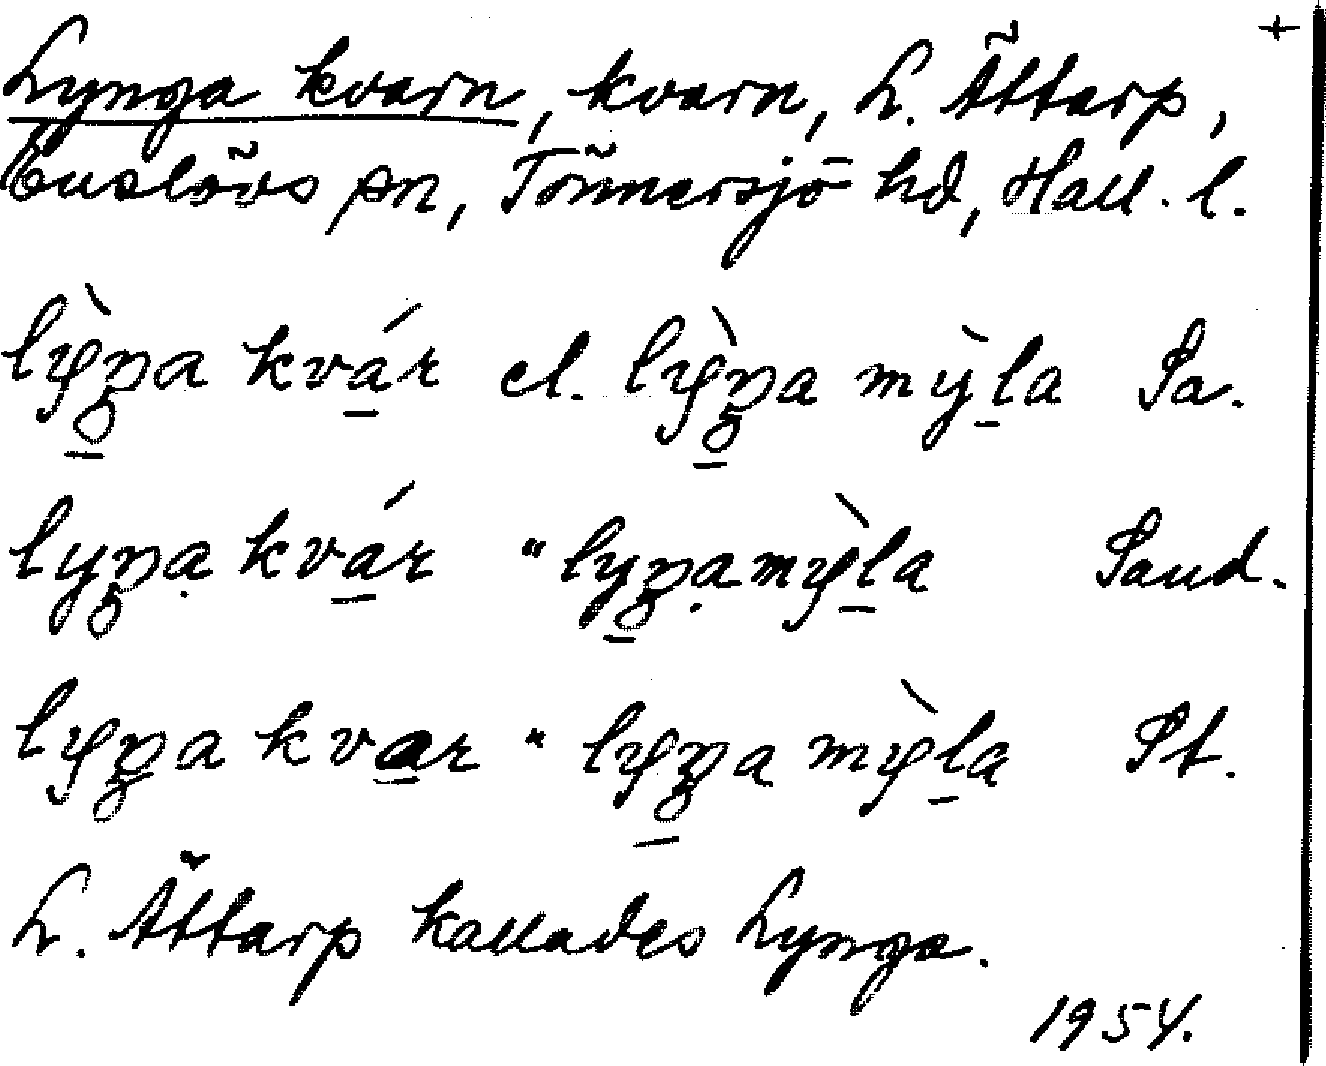 +
Lynga kvarn, kvarn, L. Ättarp,
Enslövs sn, Tönnersjö hd, Hall. l.
lỳŋa kvár el. lỳŋa mỳla Sa.
lyŋạ kvár " lyŋạmỳla Sand.
lyŋa kvar " lyŋa mỳla St.
L. Ättarp kallades Lynga.
1954.